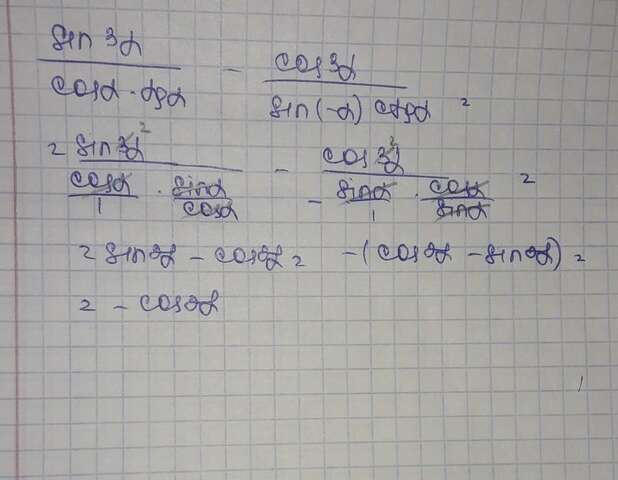 sin 3α / cosα · tgα - cos 3α / sin(-α) ctgα =
= sin 3α² / cosα/1 · sinα/cosα - cos 3α² / - sinα/1 · cosα/sinα =
= sin2α - cos2α = -(cos2α - sin2α) =
= - cos2α